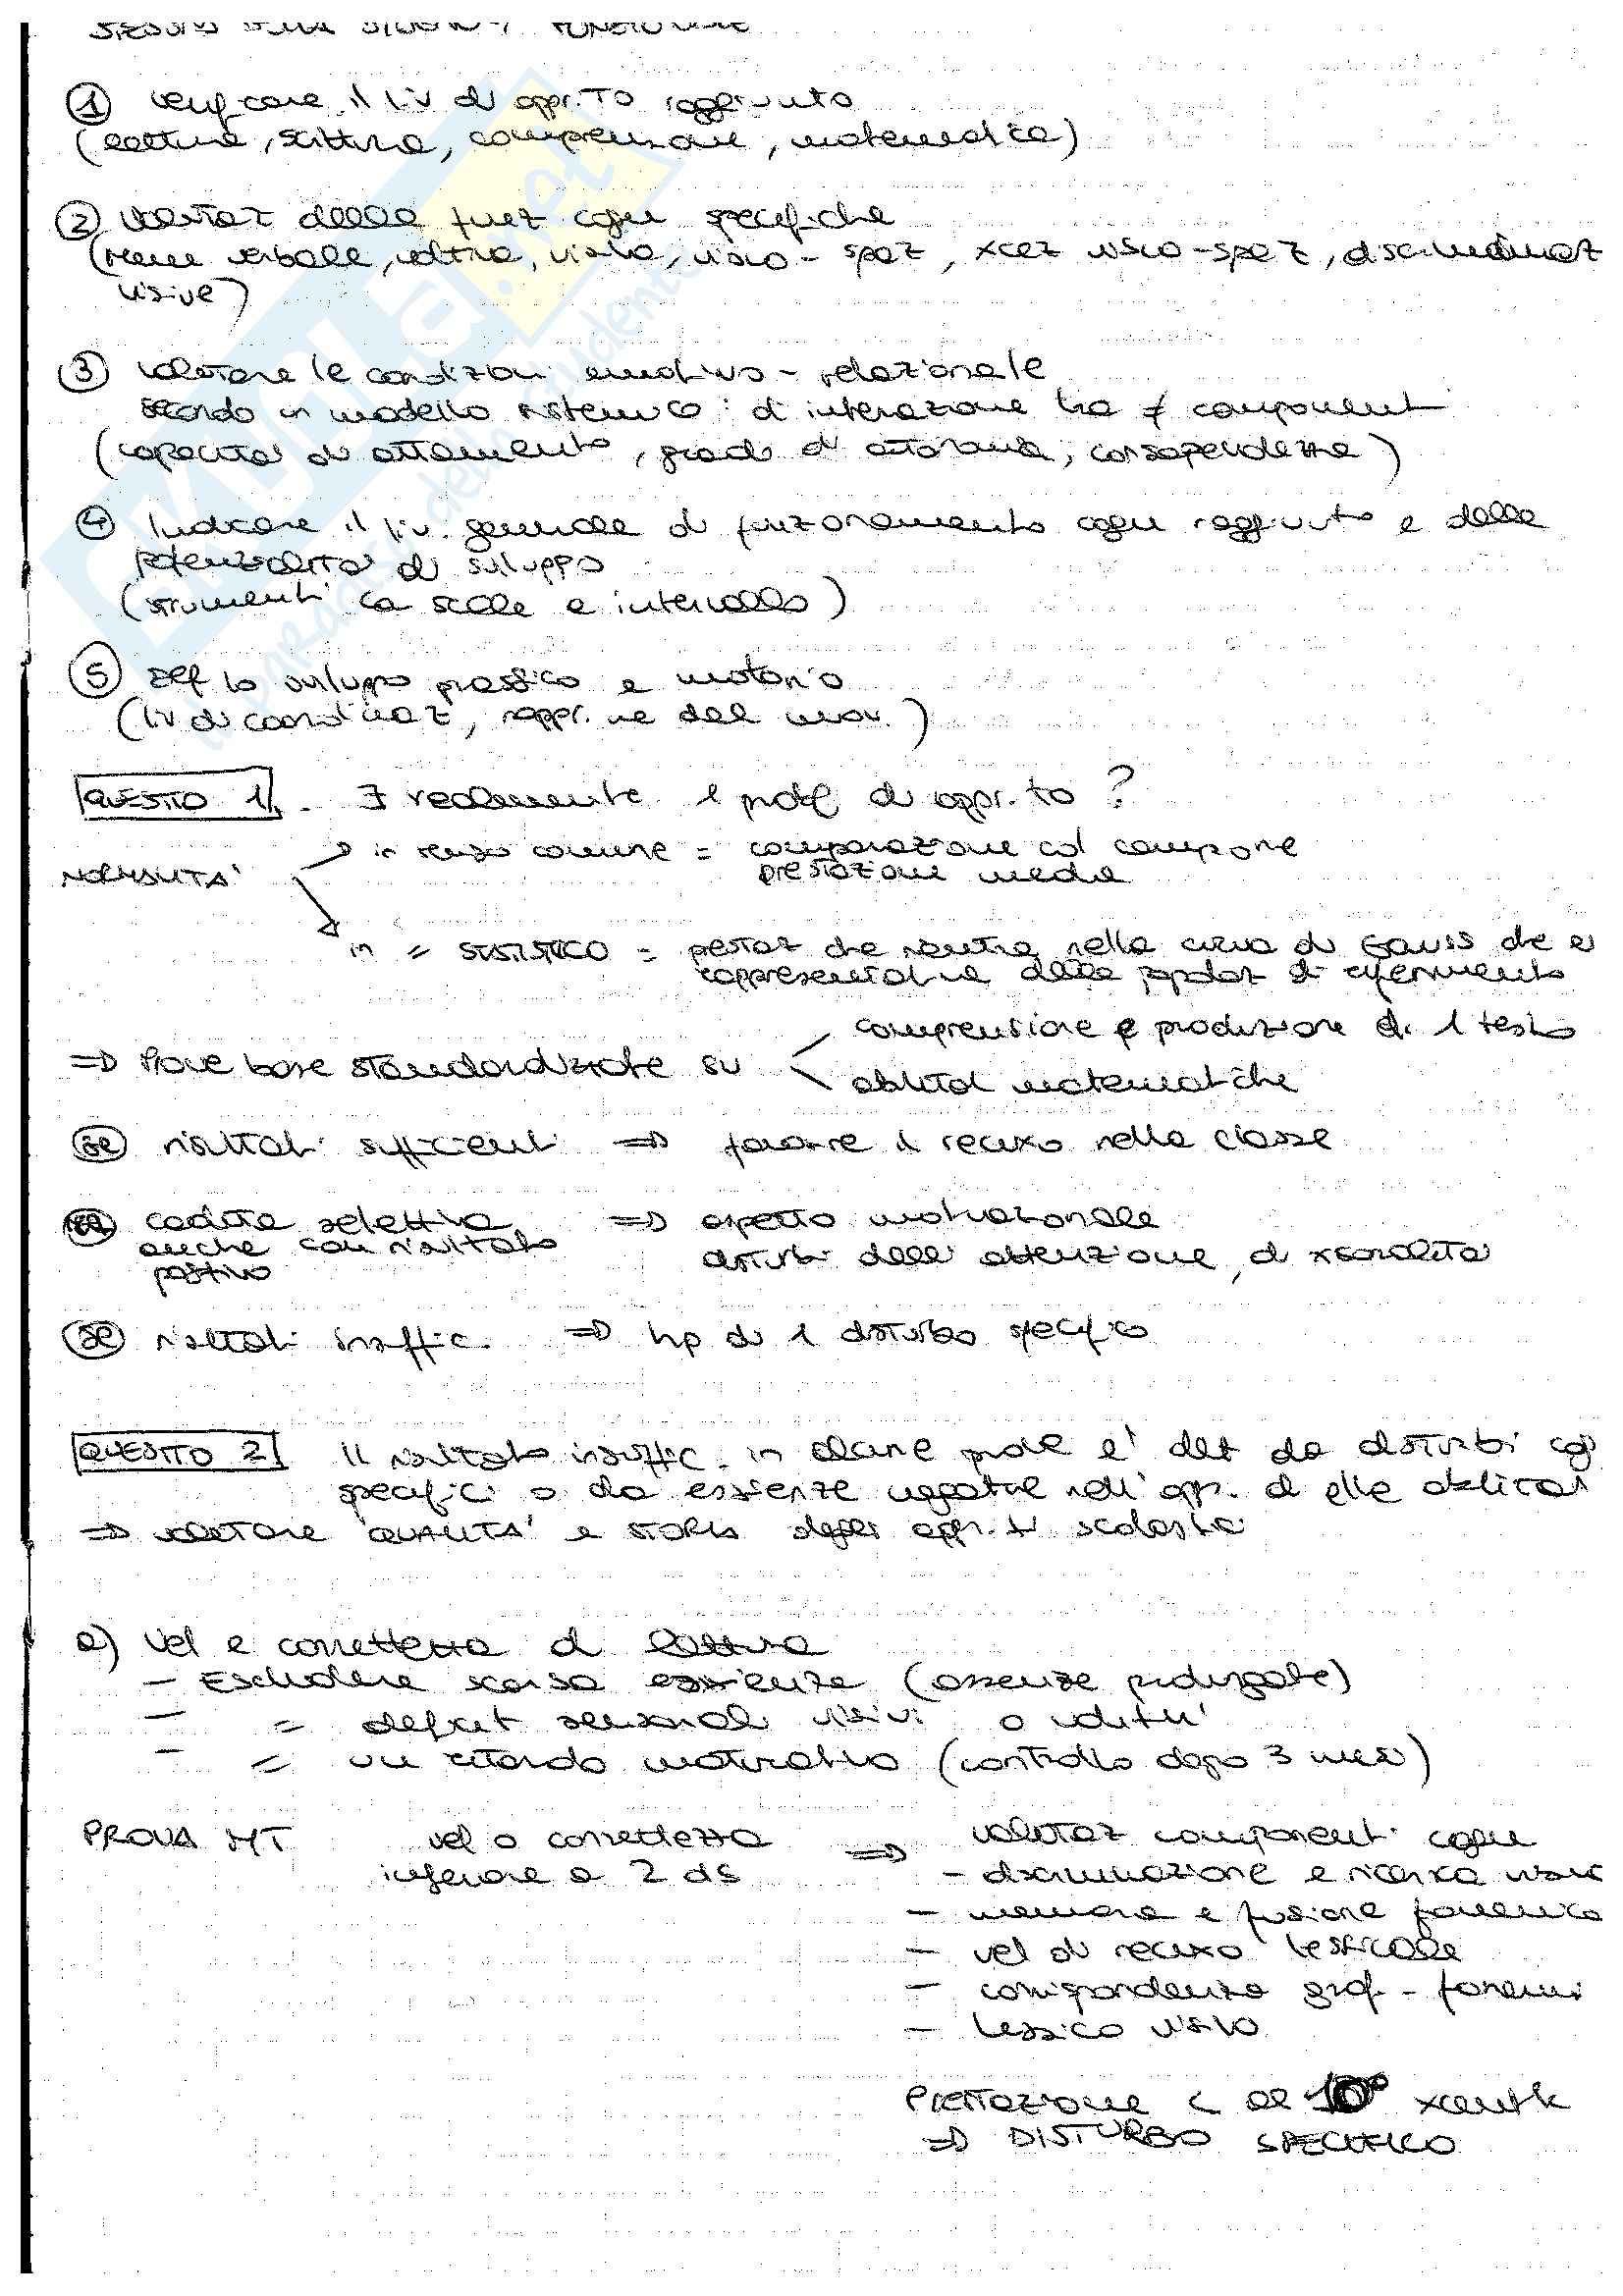 ① verificare il liv di appr.TO raggiunto
(lettura, scrittura, comprensione, matematica)
② Valutaz delle funz cogn specifiche
(mem verbale, uditiva, visiva, visuo-spaz, xcez visuo-spaz, discriminaz
visive)
③ valutare le condizioni emotivo-relazionale
secondo un modello sistemico: d'interazione tra ≠ componenti
(capacità di attamento, grado di autonomia, consapevolezza)
④ Indicare il liv. generale di funzionamento cogn raggiunto e delle
potenzialità di sviluppo
(strumenti co scale e intervallo)
⑤ Def lo sviluppo prassico e motorio
(liv di coordinaz, rappr. ne del mov.)
QUESITO 1. ∃ realmente 1 probl di appr.to?
NORMALITA' → in senso comune = comparazione col campione
prestazione media
→ in = STATISTICO = prestaz che rientra nella curva di Gauss che è
rappresentativa della popolaz di riferimento
⇒ Prove base standardizzate su comprensione e produzione di 1 testo
abilità matematiche
(se) risultati sufficienti ⇒ favorire il recuxo nella classe
(se) caduta selettiva ⇒ aspetto motivazionale
anche con risultato disturbi dell'attenzione, di xsonalità
positivo
(se) risultati insuffic. ⇒ hp di 1 disturbo specifico
QUESITO 2 Il risultato insuffic. in alcune prove è det da disturbi cogn
specifici o da esxienze negative nell'appr. di quelle abilità
⇒ valutare 'QUALITA' e STORIA degli appr.ti scolastici
a) Vel e correttezza di lettura
- Escludere scarsa esxienza (assenze prolungate)
- = deficit sensoriali visivi o uditivi
- = un ritardo maturativo (controllo dopo 3 mesi)
PROVA MT vel o correttezza ⇒ valutaz componenti cogn
inferiore a 2 ds - discriminazione e ricerca visiva
- memoria e fusione fonemica
- vel di recuxo lessicale
- corrispondenza graf-fonemi
- Lessico visivo
PRESTAZIONE < al 10° xcentile
⇒ DISTURBO SPECIFICO